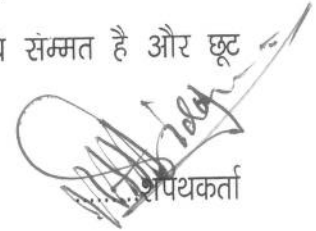 संम्मत है और छूट
.........शपथकर्ता